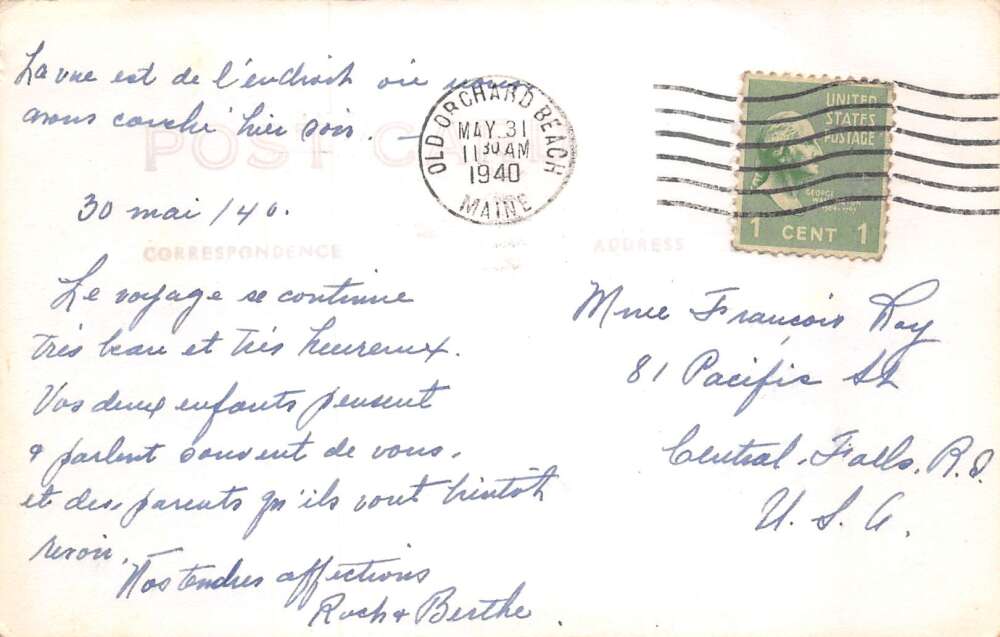 La vue est de l'endroit où nous
avons couché hier soir. —
POST CARD
30 mai /40.
CORRESPONDENCE
ADDRESS
OLD ORCHARD BEACH
MAY 31
11 30 AM
1940
MAINE
UNITED
STATES
POSTAGE
GEORGE
1 CENT 1
Le voyage se continue
très beau et très heureux.
Vos deux enfants pensent
& parlent souvent de vous,
et des parents qu'ils vont bientôt
revoir.
Nos tendres affections
Roch & Berthe
Mme François Roy
81 Pacific St
Central Falls, R.I.
U.S.A.